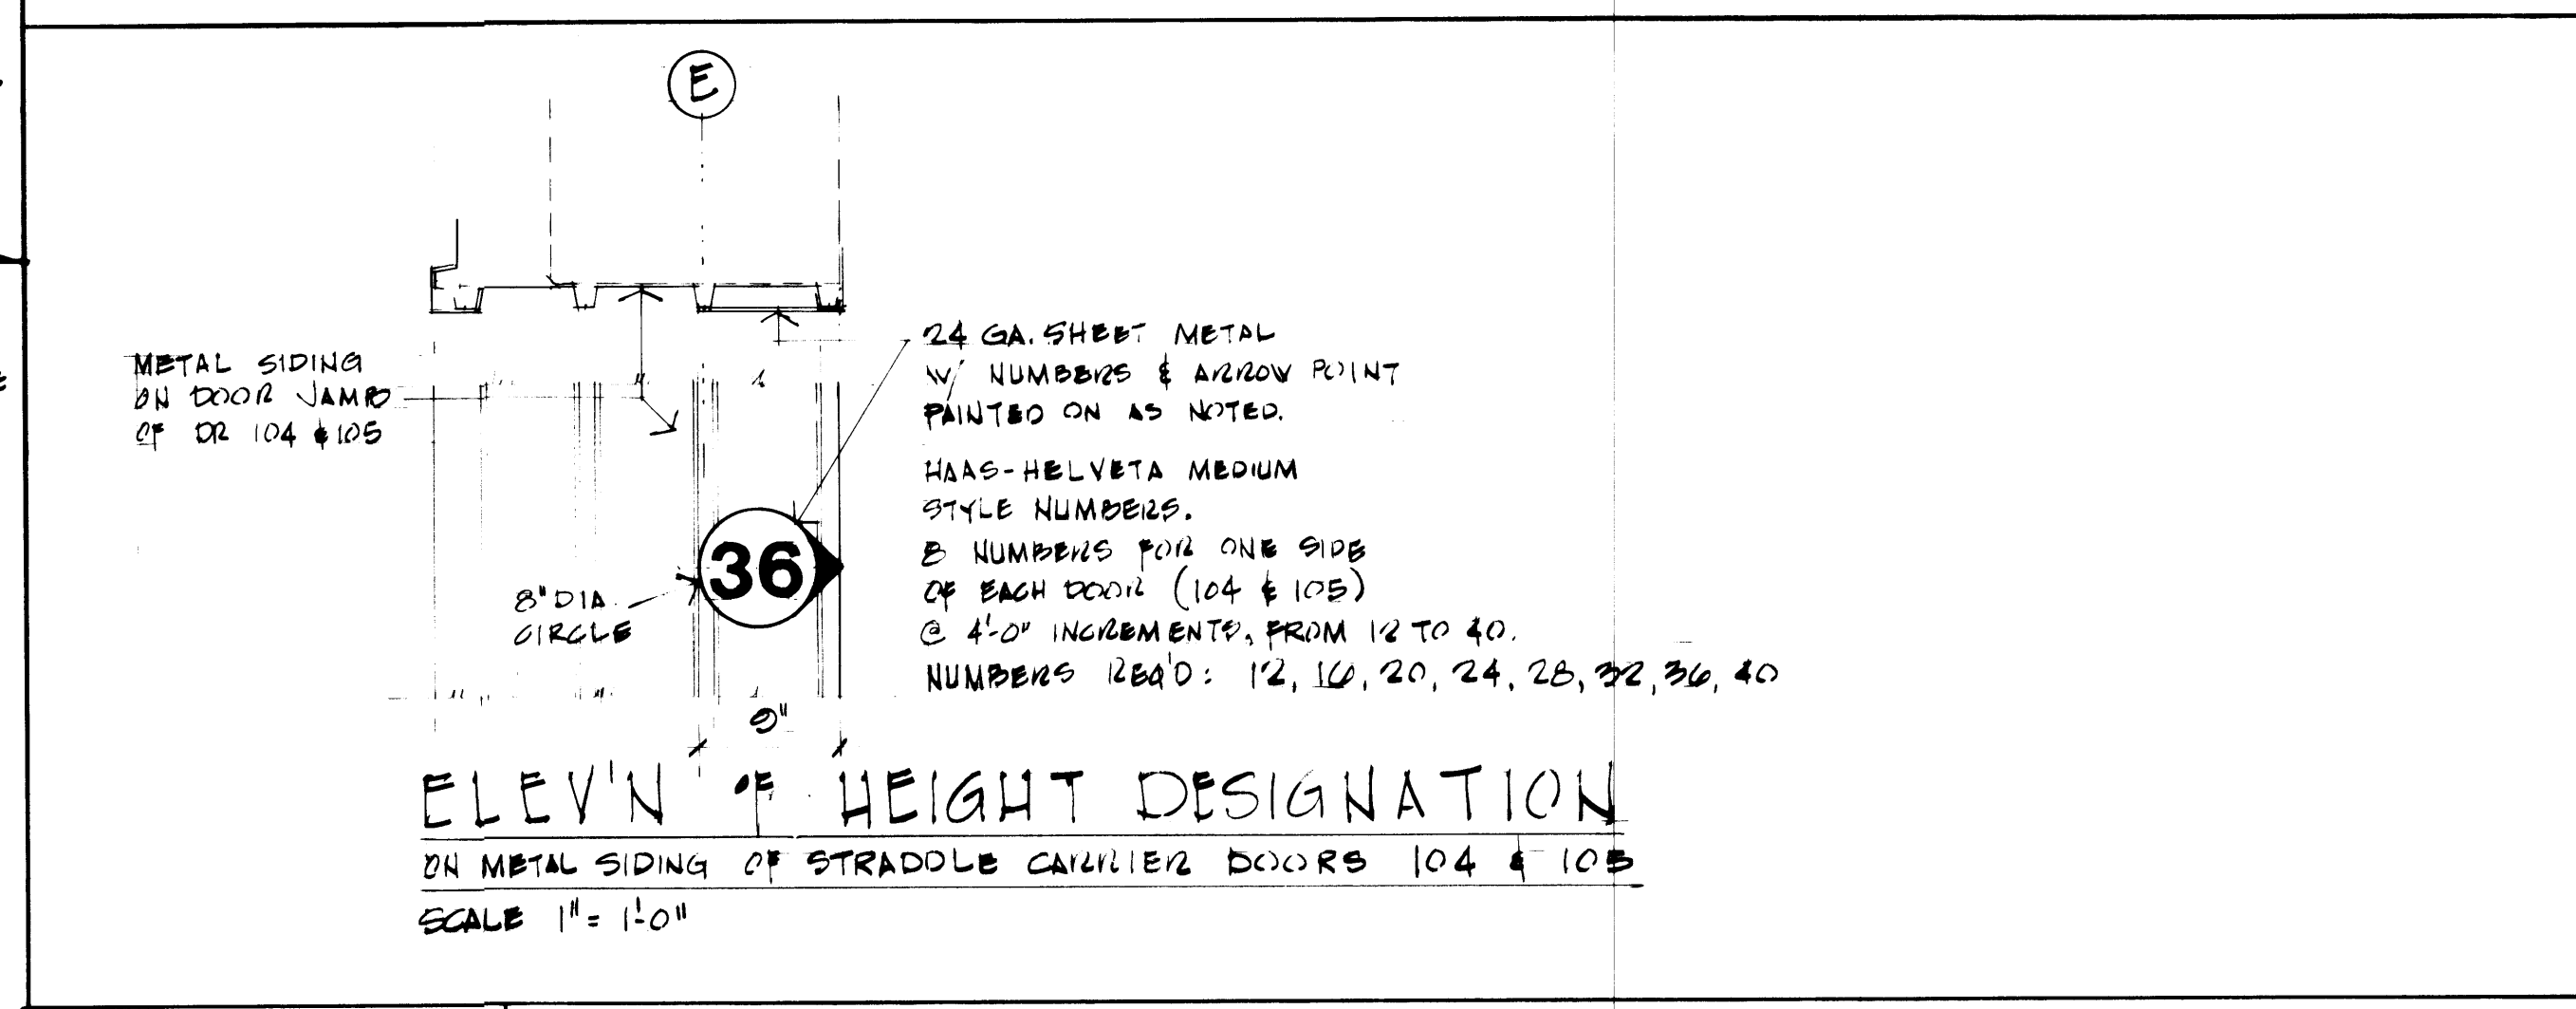 E
METAL SIDING
ON DOOR JAMB
OF DR 104 & 105
24 GA. SHEET METAL
W/ NUMBERS & ARROW POINT
PAINTED ON AS NOTED.
HAAS-HELVETA MEDIUM
STYLE NUMBERS.
8 NUMBERS FOR ONE SIDE
OF EACH DOOR (104 & 105)
@ 4'-0" INCREMENTS, FROM 12 TO 40.
NUMBERS REQ'D: 12, 16, 20, 24, 28, 32, 36, 40
36
8" DIA.
CIRCLE
9"
ELEV'N OF HEIGHT DESIGNATION
ON METAL SIDING OF STRADDLE CARRIER DOORS 104 & 105
SCALE 1" = 1'-0"